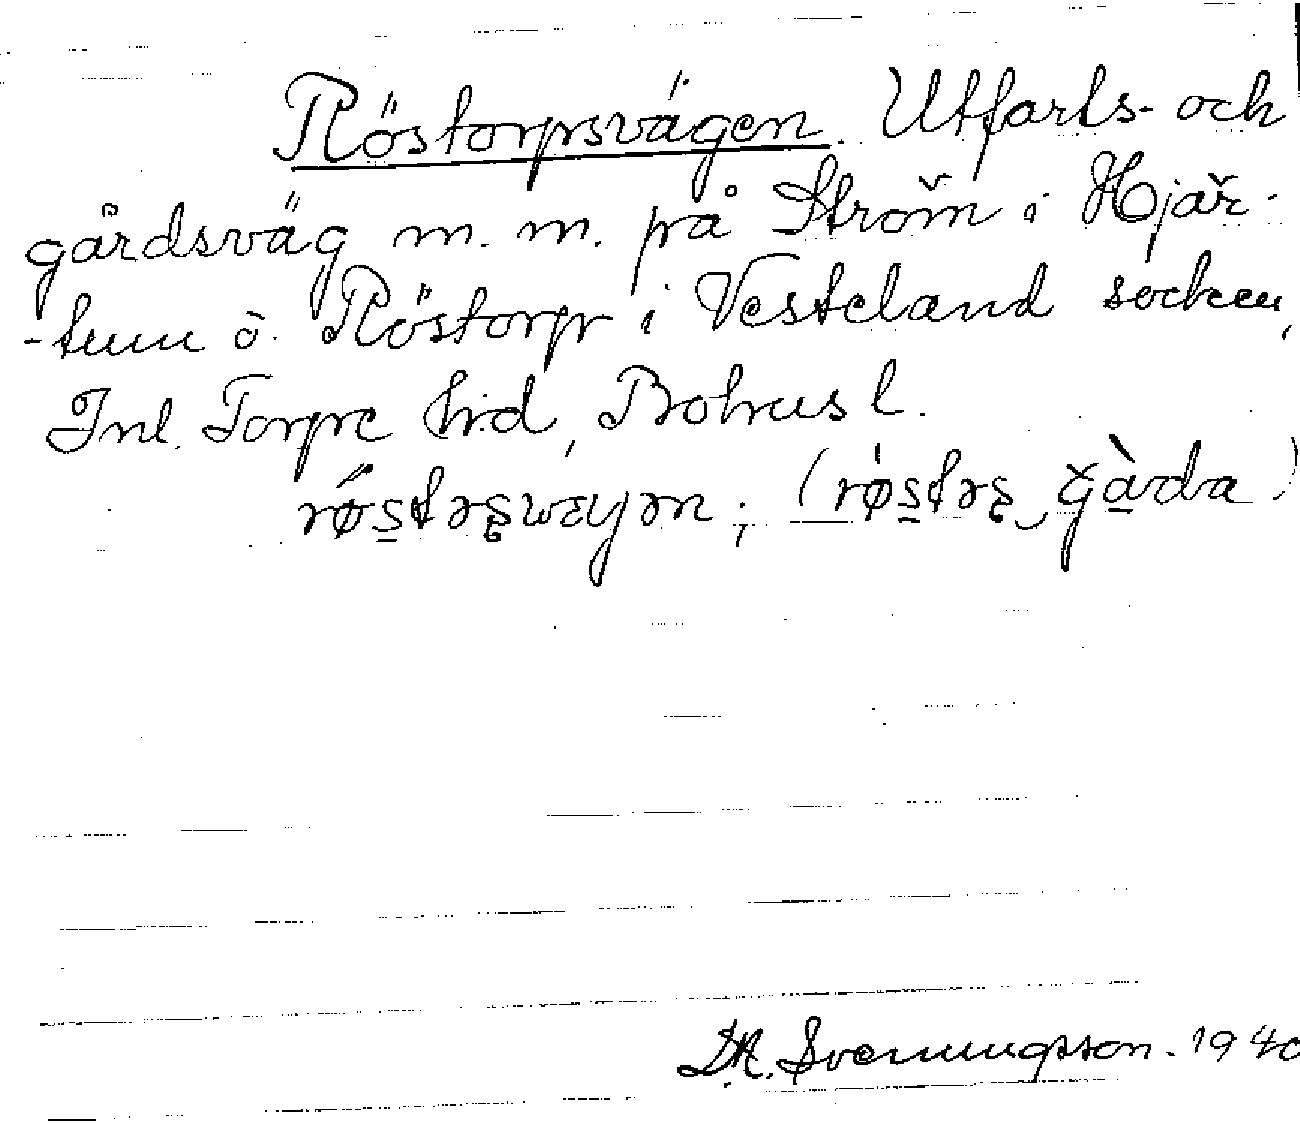 Röstorpsvägen. Utfarts- och
gårdsväg m. m. på Ström i Hjär-
-tum o. Röstorp i Vesteland socken,
Inl. Torpe hrd, Bohusl.
røstrsvɛyən; (røstrs gàrda)
Svenungsson. 1940